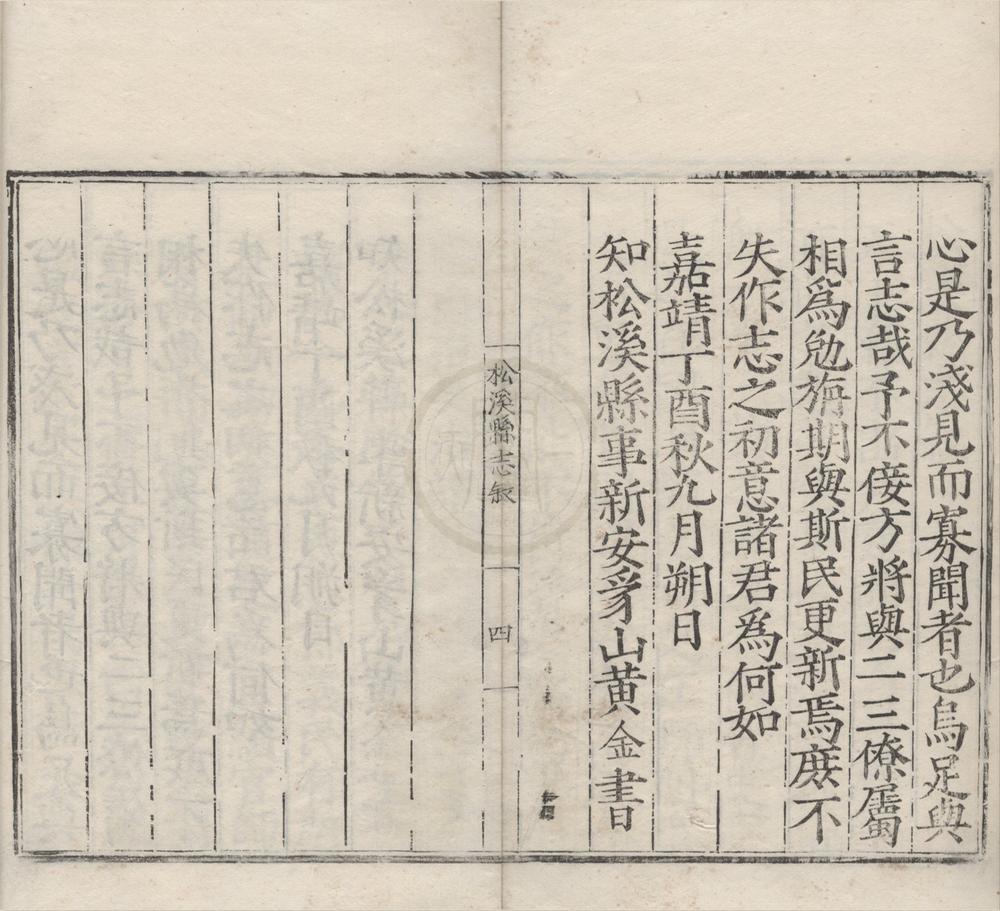 心是乃淺見而寡聞者也烏足與
言志哉予不佞方將與二三僚屬
相為勉旃期與斯民更新焉庶不
失作志之初意諸君為何如
嘉靖丁酉秋九月朔日
知松溪縣事新安山黃金書
松溪縣志敘
四